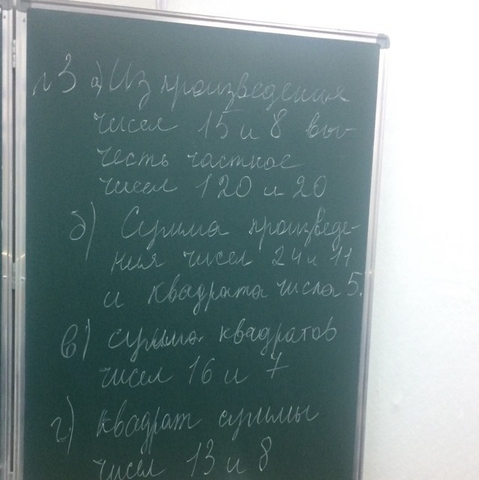 №3 а) Из произведения
чисел 15 и 8 вы-
честь частное
чисел 120 и 20
б) Сумма произведе-
ния чисел 24 и 11
и квадрата числа 5.
в) сумма квадратов
чисел 16 и 7
г) квадрат суммы
чисел 13 и 8